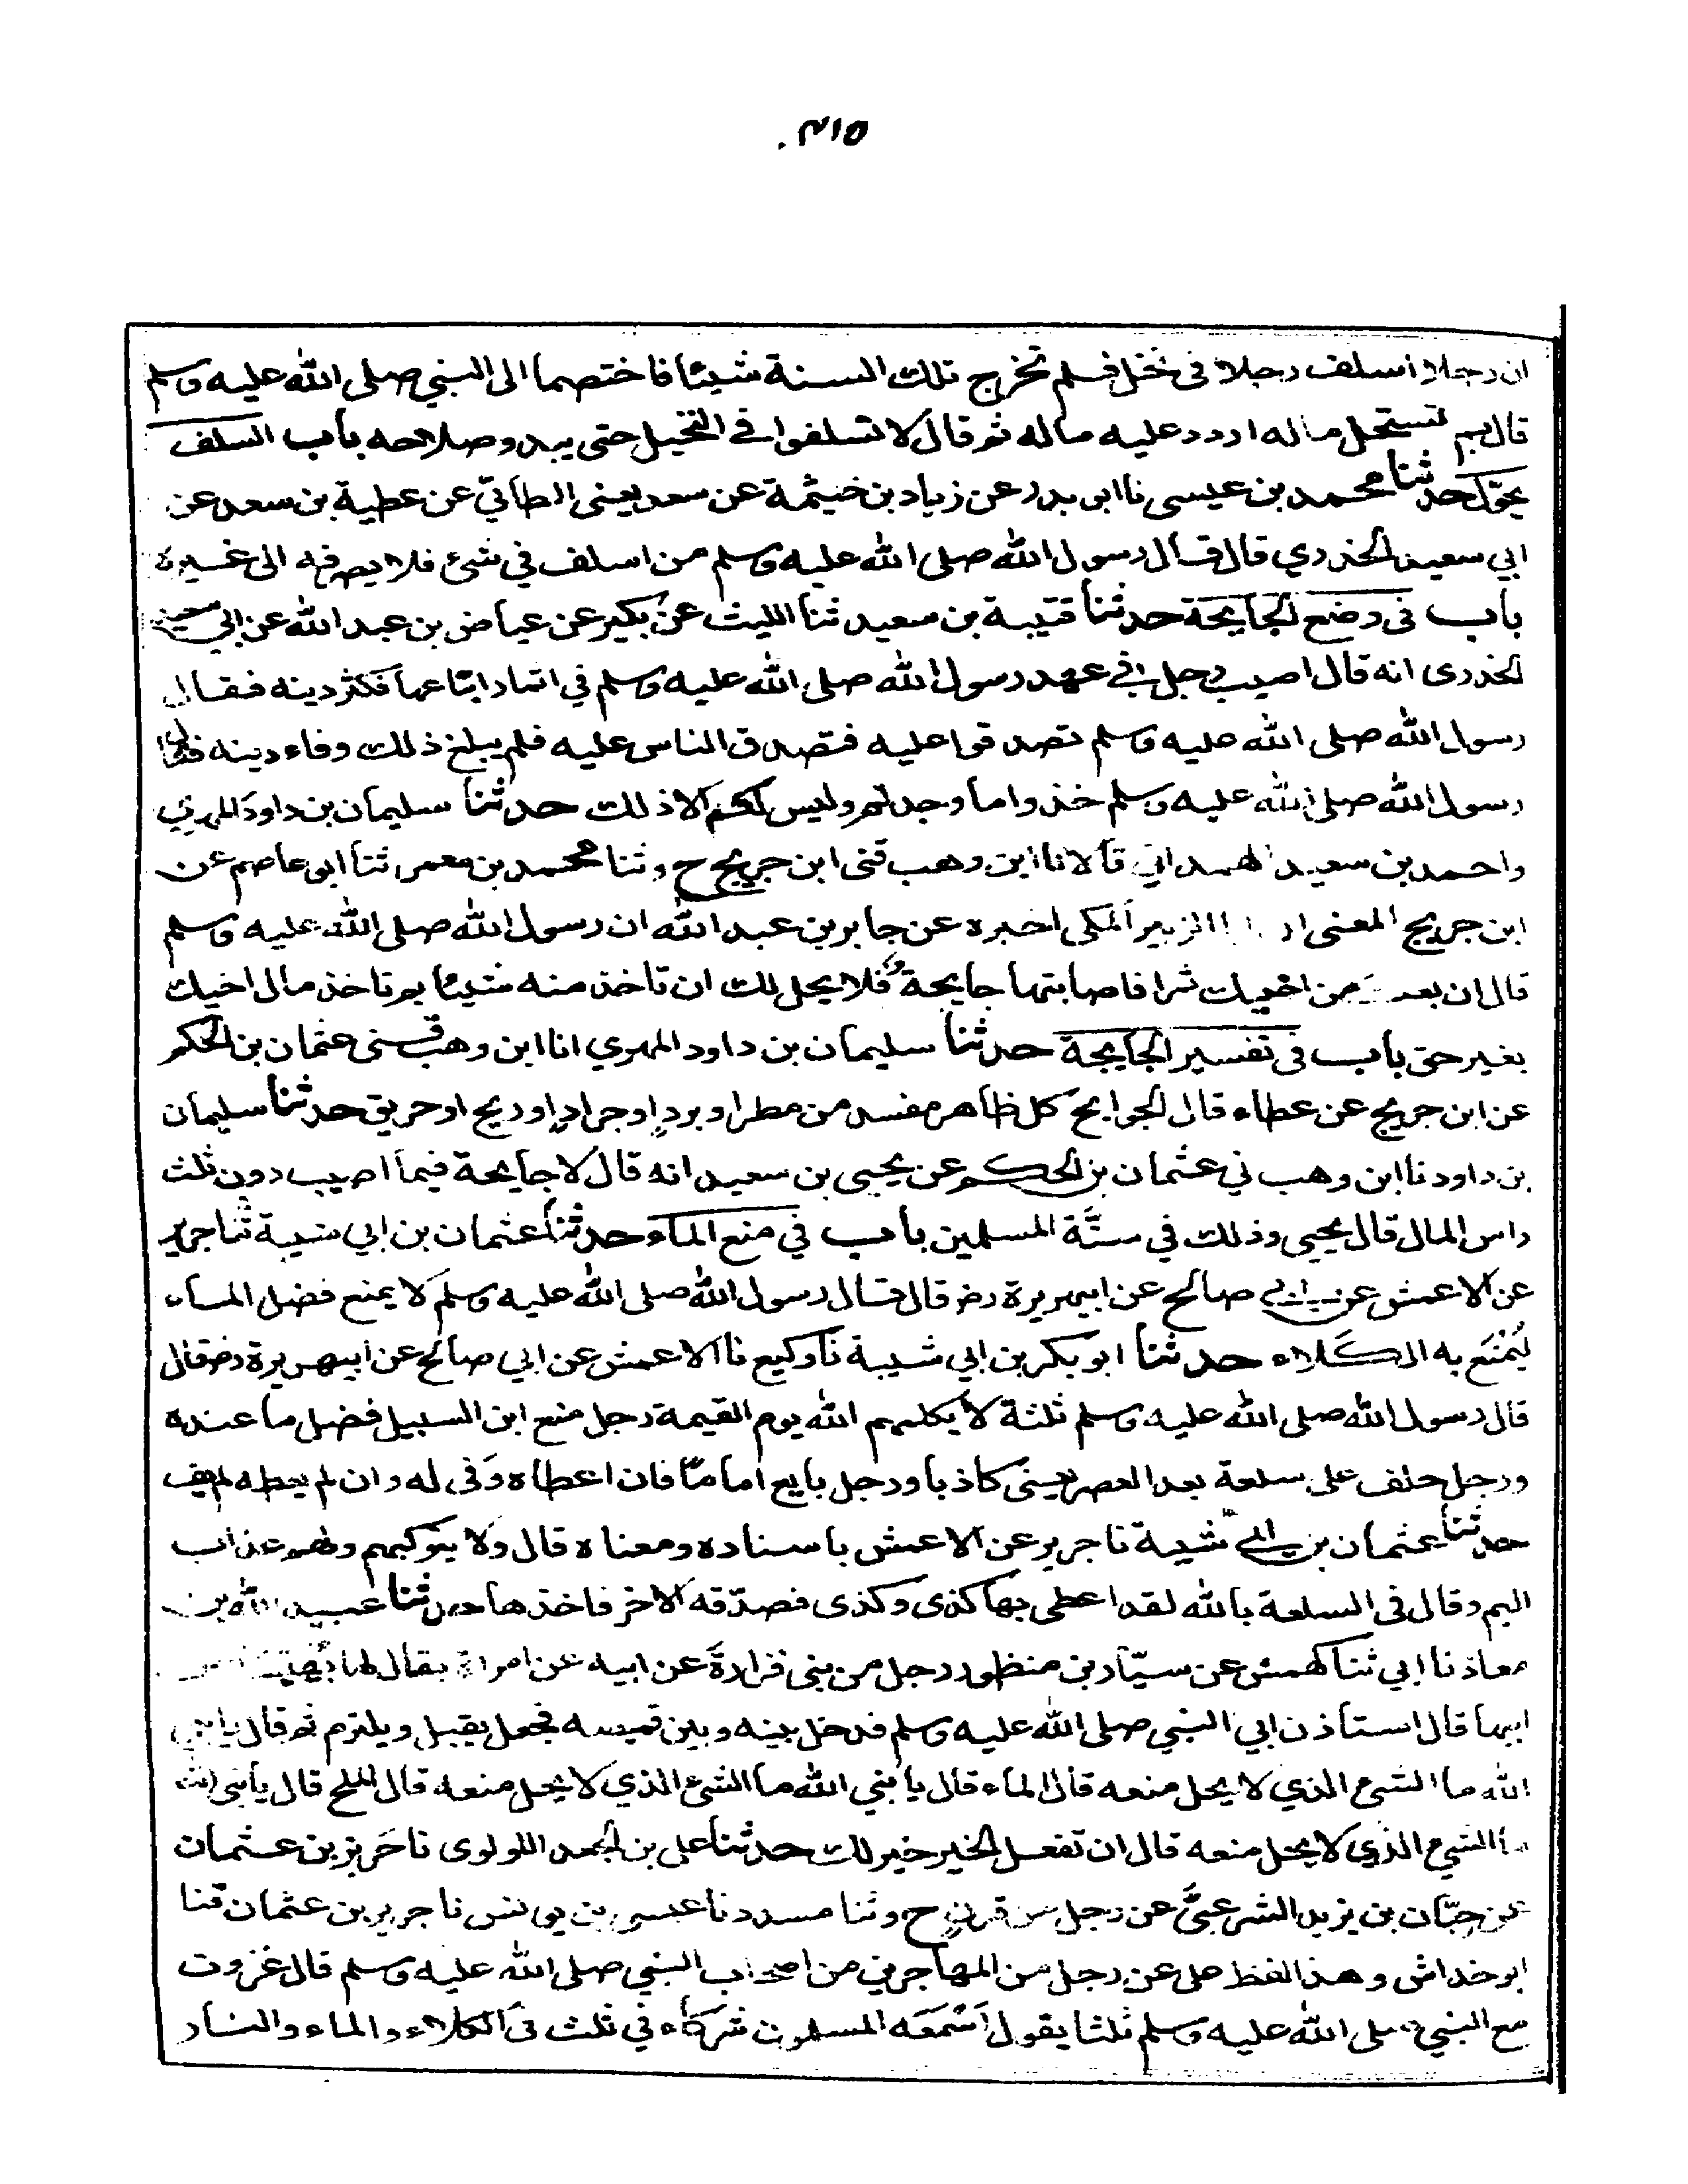 ٣١٥
ان رجلا اسلف رجلا في نخل فلم تخرج تلك السنة شيئا فاختصما الى النبي صلى الله عليه وسلم
قال بم تستحل ماله اردد عليه ماله ثم قال لا تسلفوا في النخيل حتى يبدو صلاحه باب السلف
يحوّل حدثنا محمد بن عيسى نا ابو بدر عن زياد بن خيثمة عن سعد يعني الطائي عن عطية بن سعد عن
ابي سعيد الخدري قال قال رسول الله صلى الله عليه وسلم من اسلف في شئ فلا يصرفه الى غيره
باب في وضع الجايحة حدثنا قتيبة بن سعيد ثنا الليث عن بكير عن عياض بن عبد الله عن ابي سعيد
الخدرى انه قال اصيب رجل في عهد رسول الله صلى الله عليه وسلم في اثمار ابتاعها فكثر دينه فقال
رسول الله صلى الله عليه وسلم تصدقوا عليه فتصدق الناس عليه فلم يبلغ ذلك وفاء دينه فقال
رسول الله صلى الله عليه وسلم خذوا ما وجدتم وليس لكم الا ذلك حدثنا سليمان بن داود المهري
واحمد بن سعيد الهمداني قالا نا ابن وهب ثنى ابن جريج ح وثنا محمد بن معمر ثنا ابو عاصم عن
ابن جريج المعنى الزبير المكي اخبره عن جابر بن عبد الله ان رسول الله صلى الله عليه وسلم
قال ان بعت من اخيك ثمرا فاصابتها جايحة فلا يحل لك ان تاخذ منه شيئا بم تاخذ مال اخيك
بغير حق باب في تفسير الجايحة حدثنا سليمان بن داود المهري انا ابن وهب ثنى عثمان بن الحكم
عن ابن جريج عن عطاء قال الجوايح كل ظاهر مفسد من مطر او بردٍ او جرادٍ او ريح او حريق حدثنا سليمان
بن داود نا ابن وهب ني عثمان بن الحكم عن يحيى بن سعيد انه قال لا جايحة فيما اصيب دون ثلث
راس المال قال يحيى وذلك في سنّة المسلمين باب في منع الماء حدثنا عثمان بن ابي شيبة ثنا جرير
عن الاعمش عن ابي صالح عن ابيهريرة رض قال قال رسول الله صلى الله عليه وسلم لا يمنع فضل الماء
ليُمْنَع به الكَلاء حدثنا ابو بكر بن ابي شيبة نا وكيع نا الاعمش عن ابي صالح عن ابيهريرة رض قال
قال رسول الله صلى الله عليه وسلم ثلثة لا يكلمهم الله يوم القيمة رجل منع ابن السبيل فضل ما عنده
ورجل حلف على سلعة بعد العصر يعني كاذبا ورجل بايع اماما فان اعطاه وَفى له وان لم يعطه لم يف
حدثنا عثمان بن ابي شيبة نا جرير عن الاعمش باسناده ومعناه قال ولا يزكيهم ولهم عذاب
اليم وقال في السلعة بالله لقد اعطى بها كذى وكذى فصدّقه الاخر فاخذها حدثنا عبيد الله بن
معاذ نا ابي ثنا كهمس عن سيّار بن منظور رجل من بني فزارةَ عن ابيه عن امراة يقال لها بُهيسة عن
ابيها قال استاذن ابي النبي صلى الله عليه وسلم فدخل بينه وبين قميصه فجعل يقبل ويلتزم ثم قال يا نبي
الله ما الشئ الذي لا يحل منعه قال الماء قال يا نبي الله ما الشئ الذي لا يحل منعه قال الملح قال يا نبي الله
ما الشئ الذي لا يحل منعه قال ان تفعل الخير خير لك حدثنا علي بن الجعد اللولوى نا حَريز بن عثمان
عن حِبّان بن يزيد الشرعبيّ عن رجل من قرنٍ ح وثنا مسدد نا عيسى بن يونس نا جرير بن عثمان ثنا
ابو خداش وهذا لفظ علي عن رجل من المهاجرين من اصحاب النبي صلى الله عليه وسلم قال غزوت
مع النبي صلى الله عليه وسلم ثلثا يقول اَسْمَعُه المسلمون شركاء في ثلث في الكلاء والماء والنار